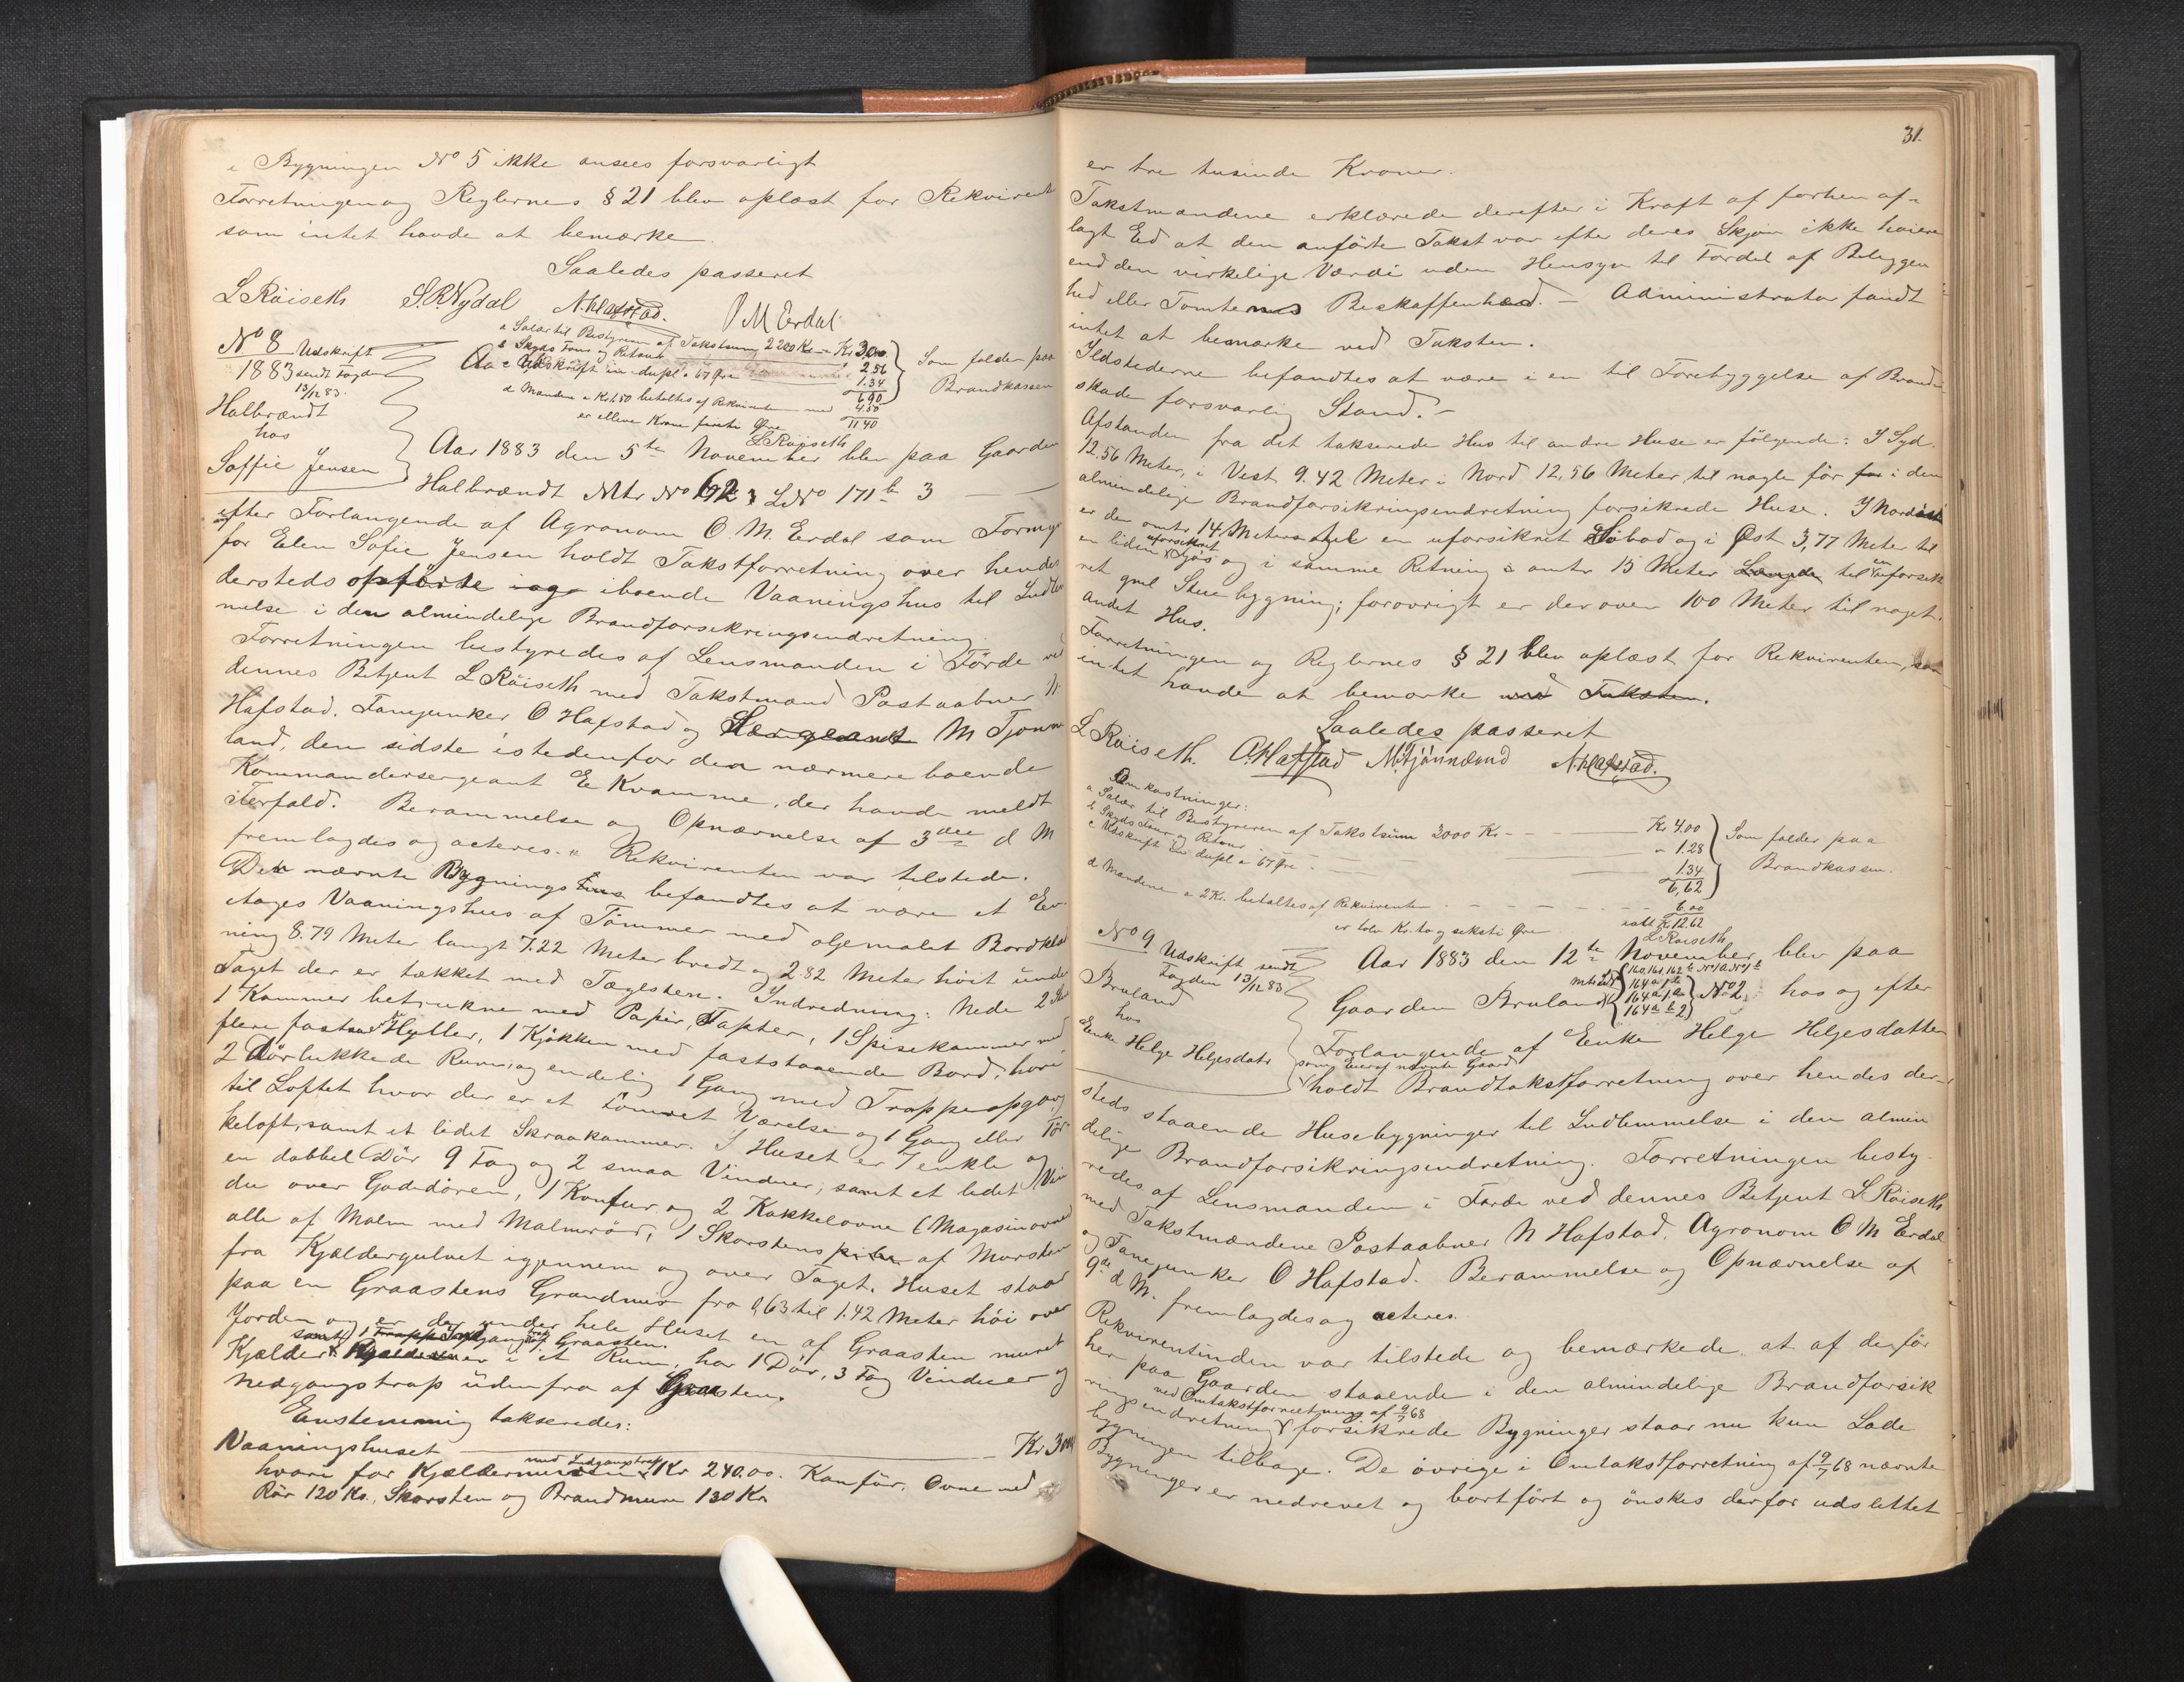 i Bygningen No 5 ikke ansees forsvarligt
Forretningen og Reglernes § 21 blev oplæst for Rekvirent
som intet havde at bemærke.
Saaledes passeret
L Röiseth S.R.Nydal N. Hafstad. O M Erdal
a Salær til Bestyreren af Takstsum 2200 Kr - Kr 3.00
b Skyds Frem og Retour 2.56
c Udskrift in dupl a 67 Øre 1.34
6.90
Som falder paa
Brandkassen
d Mændene a Kr 1.50 betaltes af Rekvirenten med 4.50
er elleve Kroner firti Øre 11 40
L Röiseth
No 8 Udskrift
1883 sendt Fogden
13/12 83.
Halbrændt
hos
Soffie Jensen
Aar 1883 den 5te November blev paa Gaarden
Halbrændt Mtr No 62 LNo 171 b 3
efter Forlangende af Agronom O. M. Erdal som Formyn
for Elen Sofie Jensen holdt Takstforretning over hendes
dersteds opførte iboende Vaaningshus til Indlem
melse i den almindelige Brandforsikringsindretning.
Forretningen bestyredes af Lensmanden i Förde ved
dennes Betjent L Röiseth med Takstmænd Postaabner N
Hafstad, Fanejunker O Hafstad og Sergeant M Tjönne
land, den sidste istedenfor den nærmere boende
Kommandersergeant E Kvamme, der havde meldt
Forfald. Berammelse og Opnævnelse af 3die d M
fremlagdes og acteres. Rekvirenten var tilstede.
Det nævnte Bygningshus befandtes at være et En
etages Vaaningshus af Tømmer med oljemalet Bordklæd
ning 8.79 Meter langt 7.22 Meter bredt og 2.82 Meter höit under
Taget der er tækket med Tagesten. Indredning: Nede 2
1 Kammer betrukne med Papir, Tapter, 1 Spisekammer med
flere fastsatte Hylder, 1 Kjøkken med faststaaende Bord, hvori
2 Dörlukkede Rum, og endelig 1 Gang med Trappeopgang
til Loftet hvor der er et tömret Værelse og 1 Gang eller Tör
keloft, samt et lidet Skraakammer. I Huset er 7 enkle og
en dobbel Dör 9 Fag og 2 smaa Vinduer, samt et lidet Vin
du over Gadedören, 1 Komfur og 2 Kakkelovne (Magasinovne)
alle af Malm med Malmrör, 1 Skorstenspibe af Mursten
fra Kjeldergulvet igjennem og over Taget. Huset staar
paa en Graastens Grundmur fra 0,63 til 1.42 Meter höi over
Jorden og er der under hele Huset en af Graasten muret
samt 1 af Graasten.
Kjelder i et Rum, har 1 Dör, 3 Fag Vinduer og
nedgangstrap udenfra af Graasten.
Enstemmig takseredes:
Vaaningshuset Kr 3000
med Indgangstrap
hvori for Kjeldermuren Kr 240.00. Komfür. Ovne med
Rör 120 Kr., Skorsten og Brandmure 130 Kr
31.
er tre tusinde Kroner.
Takstmændene erklærede derefter i Kraft af forhen af-
lagt Eed at den anførte Takst var efter deres Skjøn ikke høiere
end den virkelige Værdi uden Hensyn til Fordel af Beliggen
hed eller Tomternes Beskaffenhed. — Administrator fandt
intet at bemærke ved Taksten.
Ildstederne befandtes at være i en til Forebyggelse af Brand
skade forsvarlig Stand.
Afstanden fra det takserede Hus til andre Huse er følgende: I Syd
12.56 Meter, i Vest 9.42 Meter i Nord 12,56 Meter til nogle för i den
almindelige Brandforsikringsindretning forsikrede Huse. I Nordøst
er der omtr 14 Meter til en uforsikret Söbod og i Øst 3,77 Meter til
uforsikret
en liden og i samme Retning omtr 15 Meter til en uforsik
ret gml Stuebygning; forøvrigt er der over 100 Meter til noget
andet Hus.
Forretningen og Reglernes § 21 blev oplæst for Rekvirenten, som
intet havde at bemærke ved Taksten.
Saaledes passeret
L Röiseth. O. Hafstad M. Tjönneland N. Hafstad.
Omkostninger:
a Salær til Bestyreren af Takstsum 3000 Kr - - Kr 4.00
b Skyds Frem og Retour - 1.28
c Udskrift in dupl a 67 Øre. 1.34
6,62
Som falder paa
Brandkassen.
d Mændene a 2 Kr. betaltes af Rekvirenten 6.00
er tolv Kr. to og seksti Øre ialt Kr 12.62
L Röiseth
No 9 Udskrift sendt
Fogden 13/12 83
Bruland
hos
Enke Helge Helgesdatr
Aar 1883 den 12te November, blev paa
Gaarden Bruland No 2, hos og efter
Forlangende af Enke Helge Helgesdatter
som Eier af nævnte Gaard
holdt Brandtakstforretning over hendes der-
steds staaende Husebygninger til Indlemmelse i den almin
delige Brandforsikringsindretning. Forretningen besty-
redes af Lensmanden i Förde ved dennes Betjent L Röiseth
med Takstmændene Postaabner N Hafstad, Agronom O M Erdal
og Fanejunker O Hafstad. Berammelse og Opnævnelse af
9de d M. fremlagdes og acteres.
Rekvirentinden var tilstede og bemærkede, at af de för
her paa Gaarden staaende i den almindelige Brandforsik
ved Omtakstforretning af 9/7 68
ringsindretning forsikrede Bygninger staar nu kun Lade
bygningen tilbage. De övrige i Omtakstforretning af 9/7 68 nævnte
Bygninger er nedrevet og bortfört og ønskes derfor udslettet